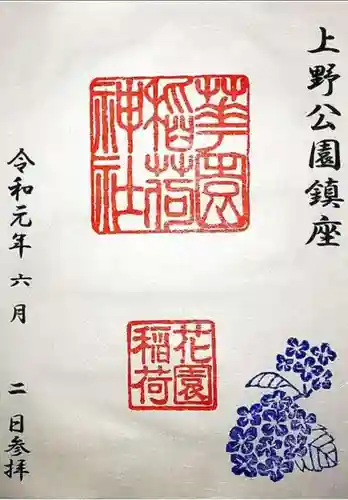 上野公園鎮座
華園
稲荷
神社
花園
稲荷
令和元年 六月 二日参拝